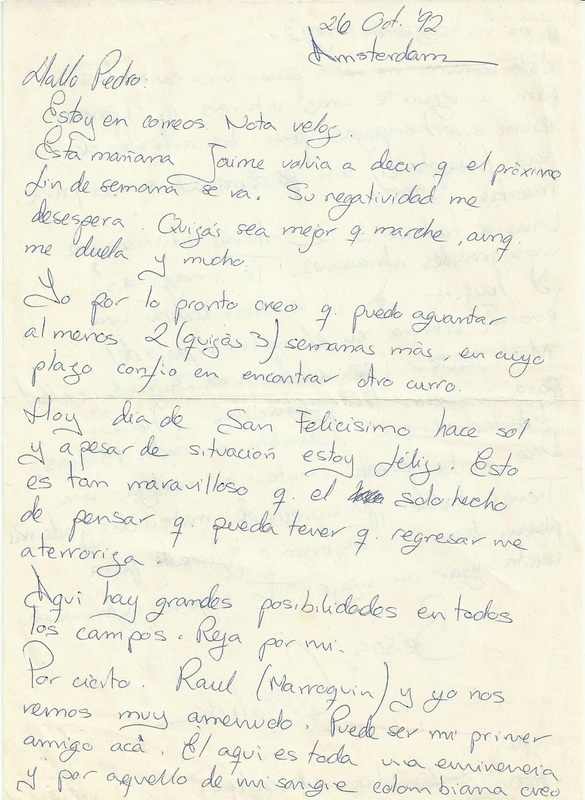 26 Oct. '92
Amsterdam
Hallo Pedro:
Estoy en correos. Nota veloz.
Esta mañana Jaime volvia a decir q el próximo
fin de semana se va. Su negatividad me
desespera. Quizás sea mejor q marche, aunq.
me duela y mucho.
Yo por lo pronto creo q. puedo aguantar
al menos 2 (quizás 3) semanas más, en cuyo
plazo confio en encontrar otro curro.
Hoy dia de San Felicisimo hace sol
y apesar de situación estoy féliz. Esto
es tam maravilloso q. el solo hecho
de pensar q pueda tener q. regresar me
aterroriza.
Aqui hay grandes posibilidades en todos
los campos. Reza por mi.
Por cierto. Raul (Marroquin) y yo nos
vemos muy amenudo. Puede ser mi primer
amigo acá. Él aqui es toda una eminencia
y por aquello de mi sangre colombiana creo